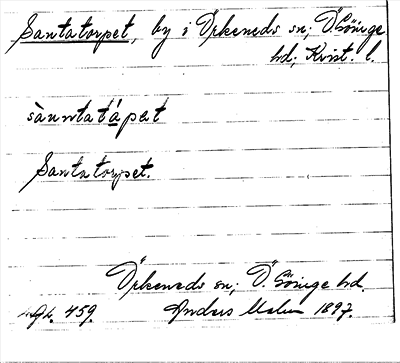 Santatorpet, by i Örkeneds sn; Ö. Göinge
hd; Krist. l.
sànntatá pet
Santatorpet.
Örkeneds sn; Ö. Göinge hd.
459. Anders Malm 1897.